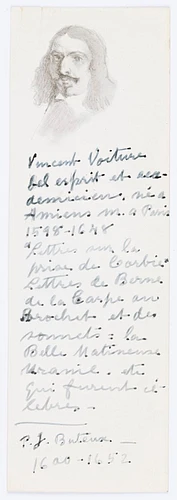 Vincent Voiture
bel esprit et aca-
demicien, né à
Amiens m. à Paris
1598-1648
"Lettres sur la
prise de Corbie"
Lettres de Berne
de la Carpe au
Brochet et des
sonnets: la
Belle Matineuse
Uranie. etc
qui furent cé-
lèbres.-
P. J. Buteux -
1600-1652